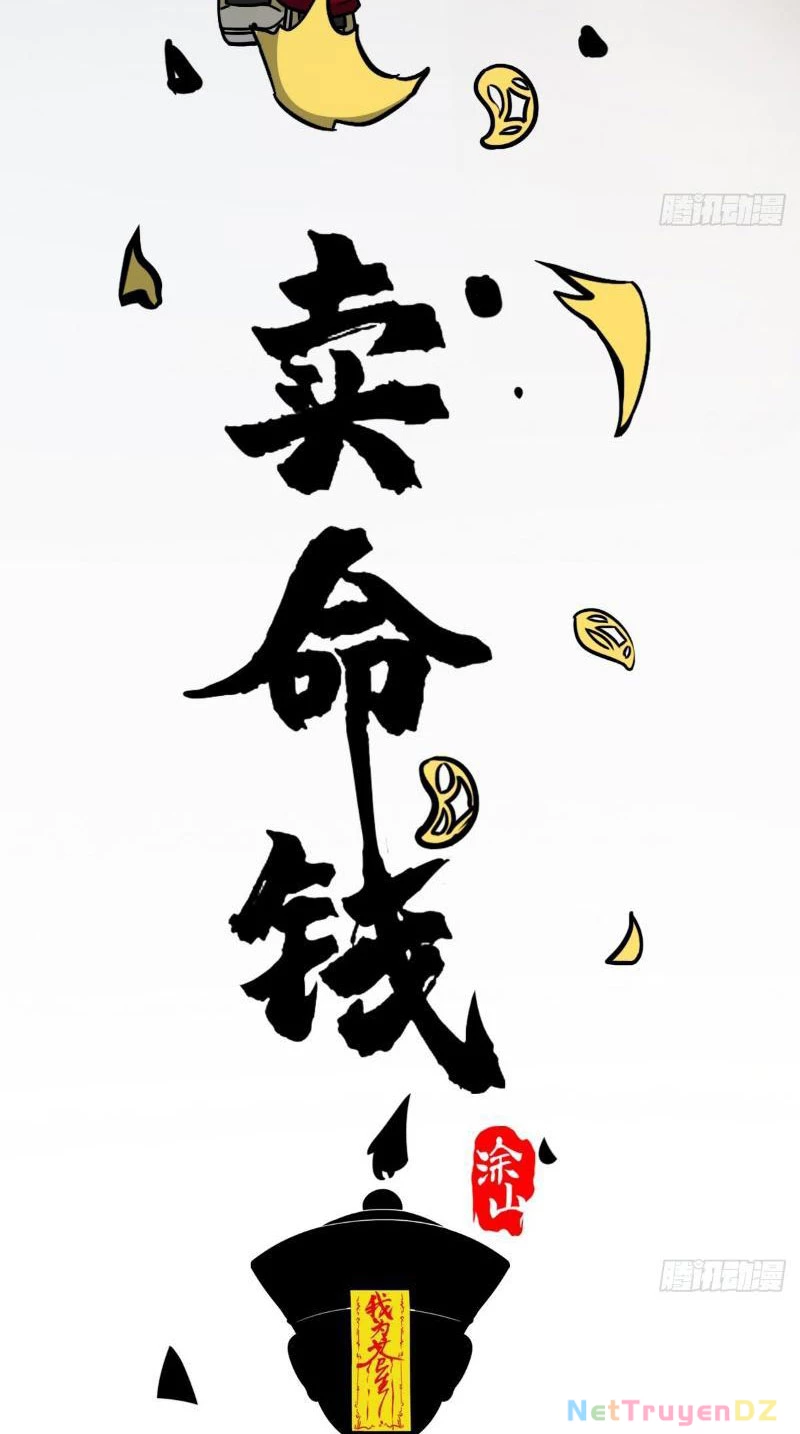 腾讯动漫
卖
命
钱
涂山
腾讯动漫
我为
NetTruyenDZ